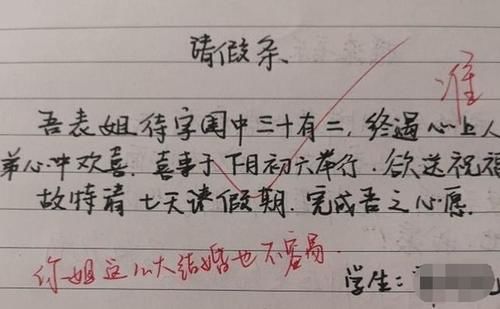 请假条.
准
吾表姐待字闺中三十有二,终遇心上人
弟心中欢喜.喜事于下月初六举行.欲送祝福
故特请七天请假期.完成吾之心愿.
你姐这么大结婚也不容易.
学生: